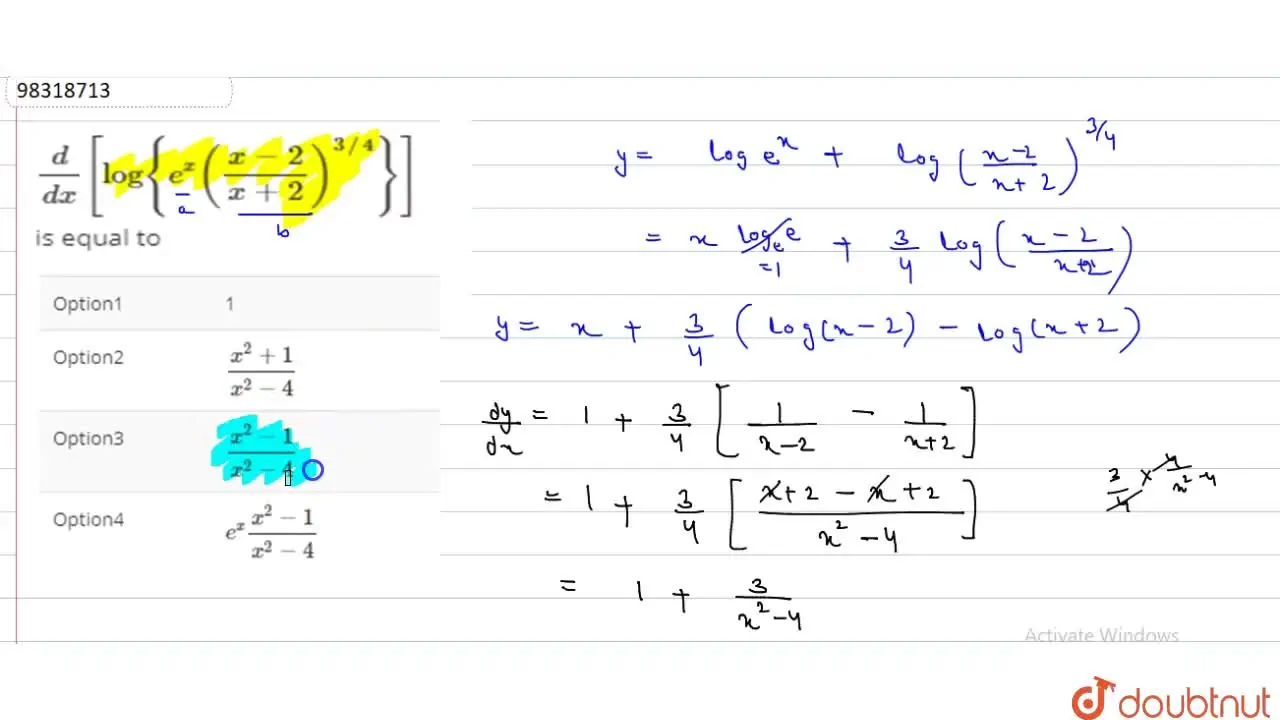 98318713
d/dx [log{e^x ((x − 2)/(x + 2))^3/4}]
a
b
is equal to
Option1 1
Option2 (x² + 1)/(x² − 4)
Option3 (x² − 1)/(x² − 4)
Option4 e^x (x² − 1)/(x² − 4)
y = log e^x + log ((x − 2)/(x + 2))^3/4
= x log_e e + 3/4 log ((x − 2)/(x + 2))
= 1
y = x + 3/4 (log(x − 2) − log(x + 2))
dy/dx = 1 + 3/4 [1/(x − 2) − 1/(x + 2)]
= 1 + 3/4 [(x + 2 − x + 2)/(x² − 4)]
3/4 × 4/(x² − 4)
= 1 + 3/(x² − 4)
Activate Windows
doubtnut